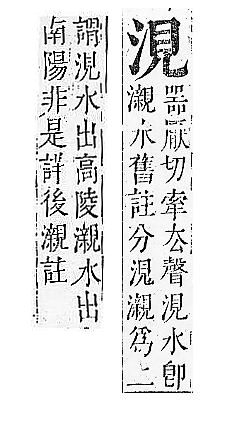 涀
噐厭切牽厺聲涀水卽
瀙水舊註分涀瀙爲二
謂涀水出高陵瀙水出
南陽非是詳後瀙註